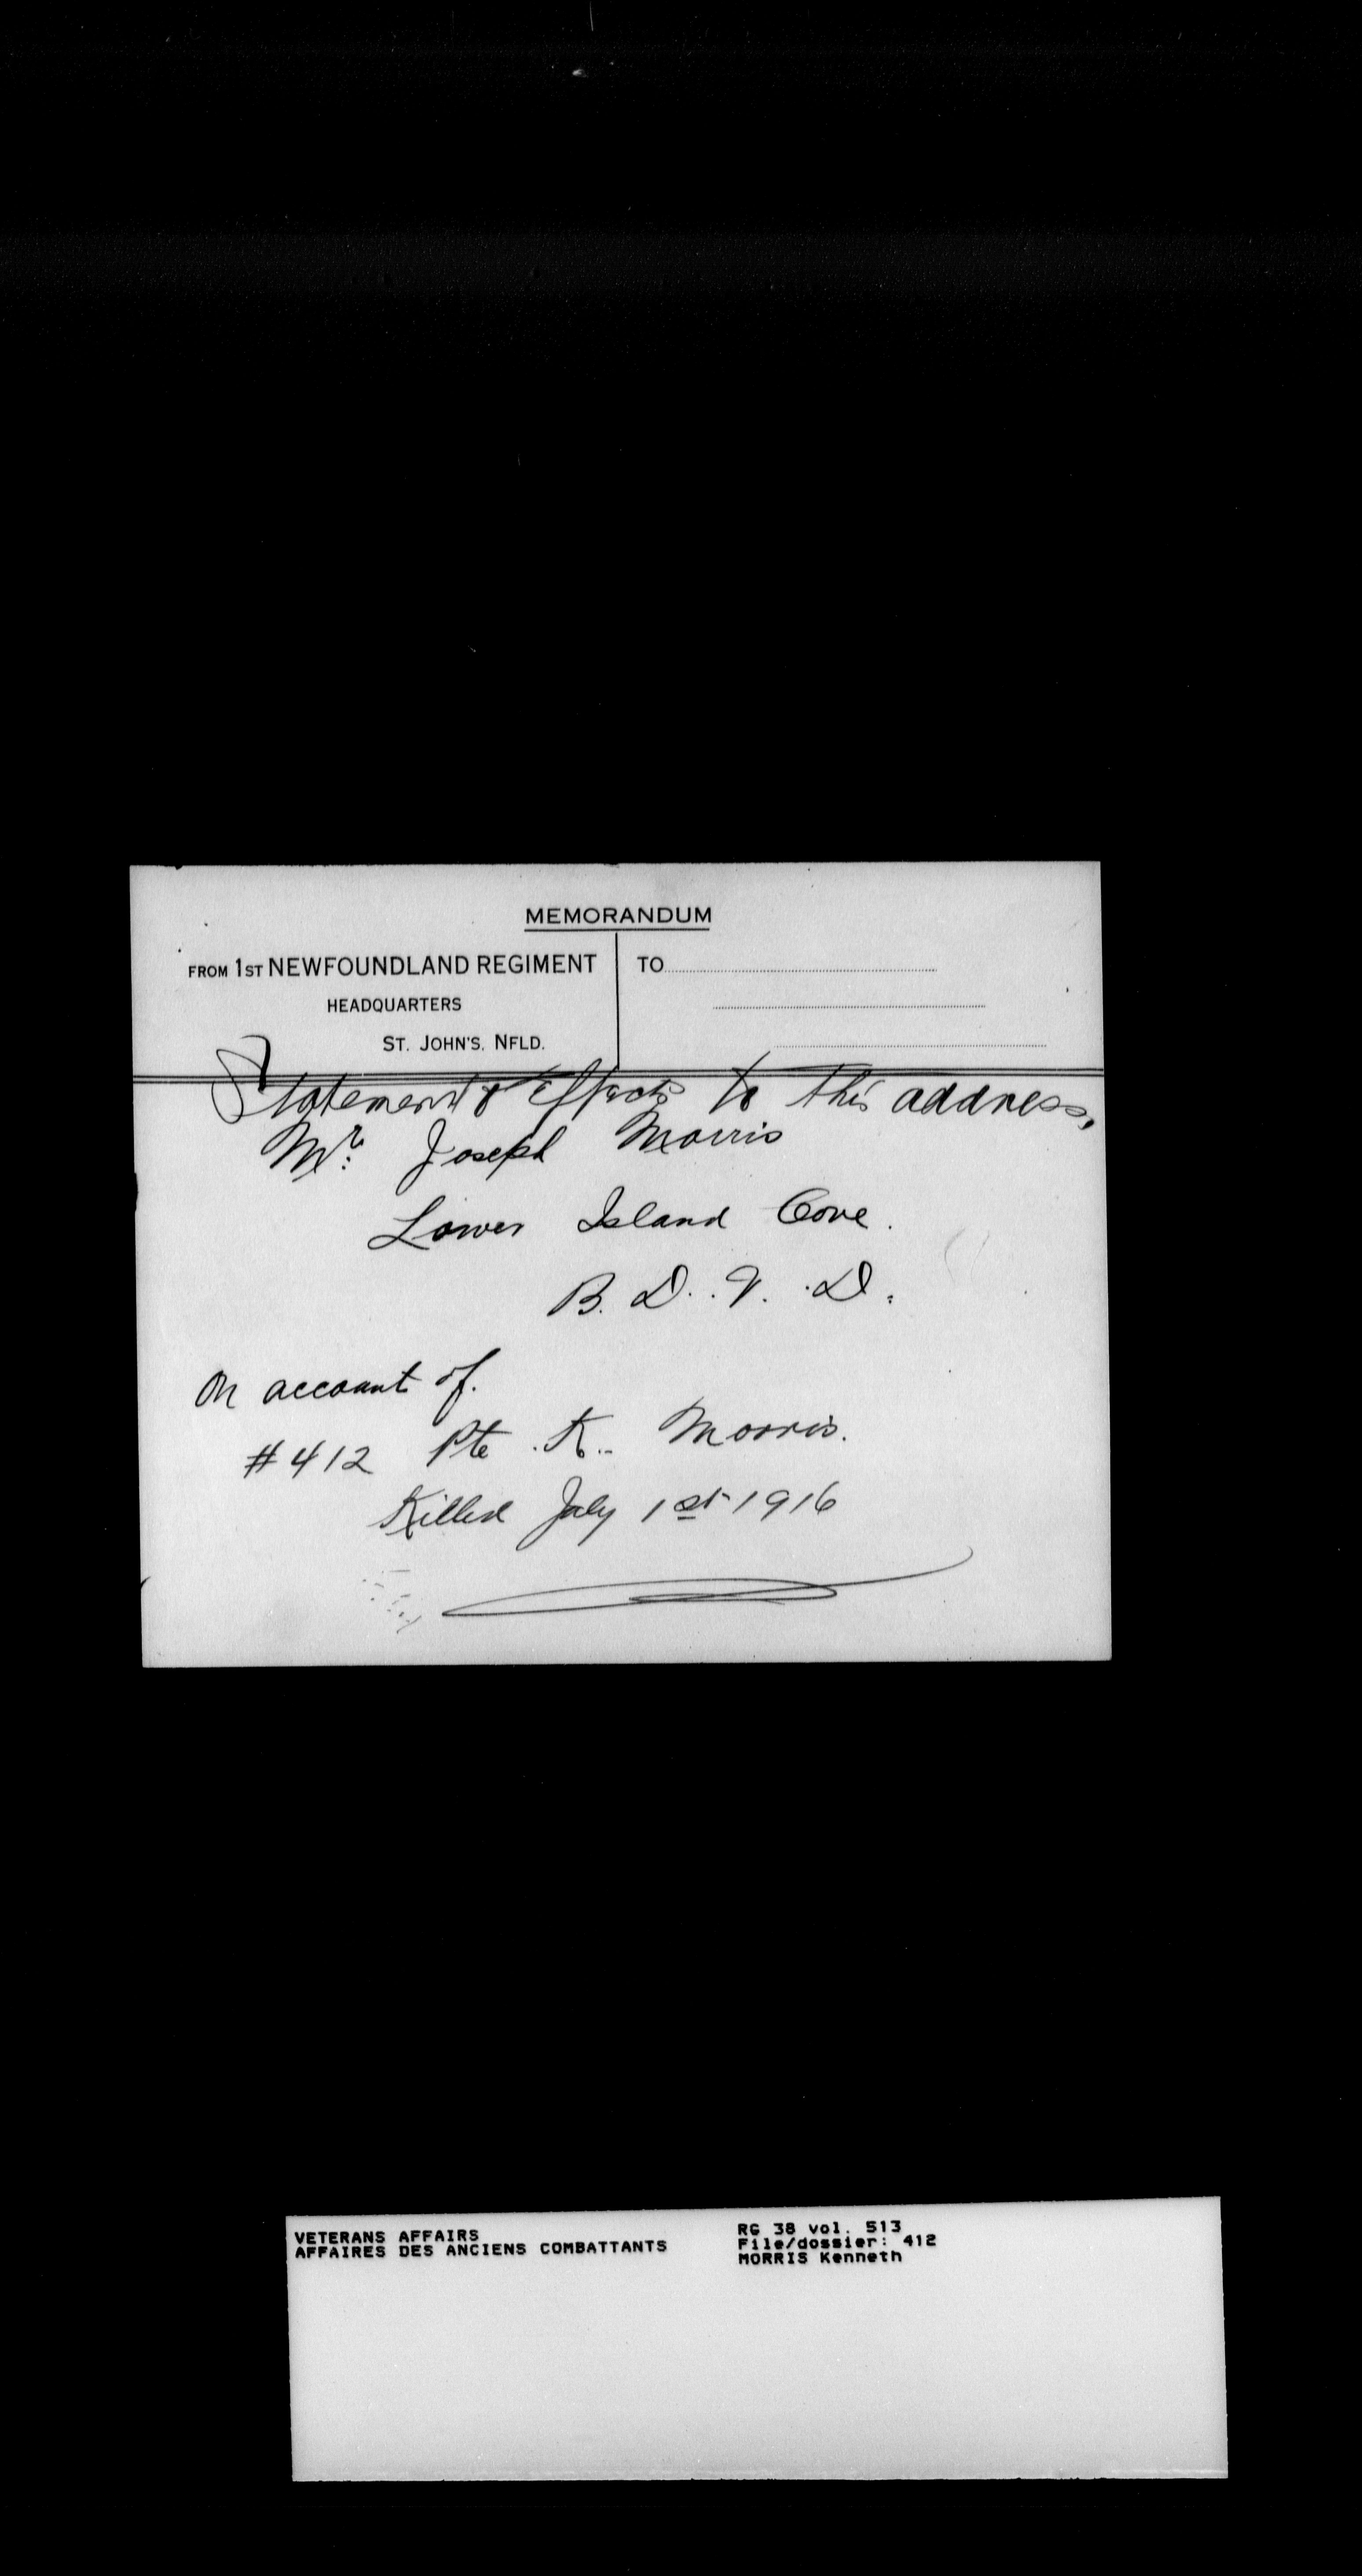 MEMORANDUM
FROM 1ST NEWFOUNDLAND REGIMENT
HEADQUARTERS
ST. JOHN'S. NFLD.
TO
Statement & Effects to this address,
Mr. Joseph Morris
Lower Island Cove.
B. D. V. D.
On account of.
#412 Pte. K. Morris.
Killed July 1st 1916
VETERANS AFFAIRS
AFFAIRES DES ANCIENS COMBATTANTS
RG 38 vol. 513
File/dossier: 412
MORRIS Kenneth